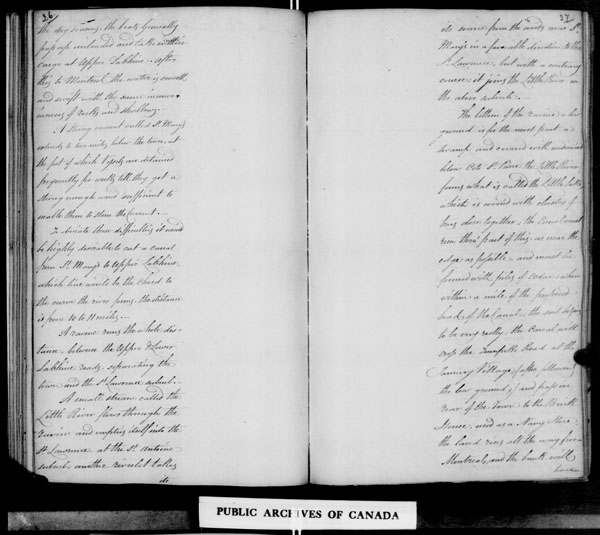 26
the dry seasons, the boats generally
pass up unloaded and take in their
cargo at Upper Lachine. after
this to Montreal, the water is smooth
and swift with the same inconve,
niences of rocks and shallows.
A strong current called St. Mary's
extends to two miles below the town, at
the foot of which Vessels are detained
frequently for weeks till they get a
strong enough wind sufficient to
enable them to stem the Current.
To obviate these difficulties it would
be highly desirable to cut a canal
from St. Mary's to Upper Lachine,
which line would be the chord to
the curve the river forms, the distance
is from 10 to 11 miles.
A ravine runs the whole dis-
tance, between the Upper & Lower
Lachine roads, separating the
town and the St. Lawrence suburb.
A small stream called the
Little River flows through the
ravine and empties itself into the
St. Lawrence at the St. Antoine
suburb, another rivulet takes
its
27
its source from the
Mary's in a favorable direction to the
St. Lawrence, but with a contrary
course, it joins the Little River in
the above suburb.
The bottom of the ravine
ground is for the most part a
swamp and covered with underwood
below Cote St. Pierre the Little River
forms what is called the Little Lake
which is covered with clusters of
trees close together, the Canal must
run thro' part of this, as near the
edge as possible and must be
formed with piles of Cedar, when
within a mile of the proposed
head of the Canal, the soil
to be very rocky, the Canal will
cross the Turnpike Road at the
Tannery Village, (after following
the low ground,) and pass in
rear of the Town to the
House, used as a Navy Store,
the land rises all the way from
Montreal, and the bank will
have
PUBLIC ARCHIVES OF CANADA